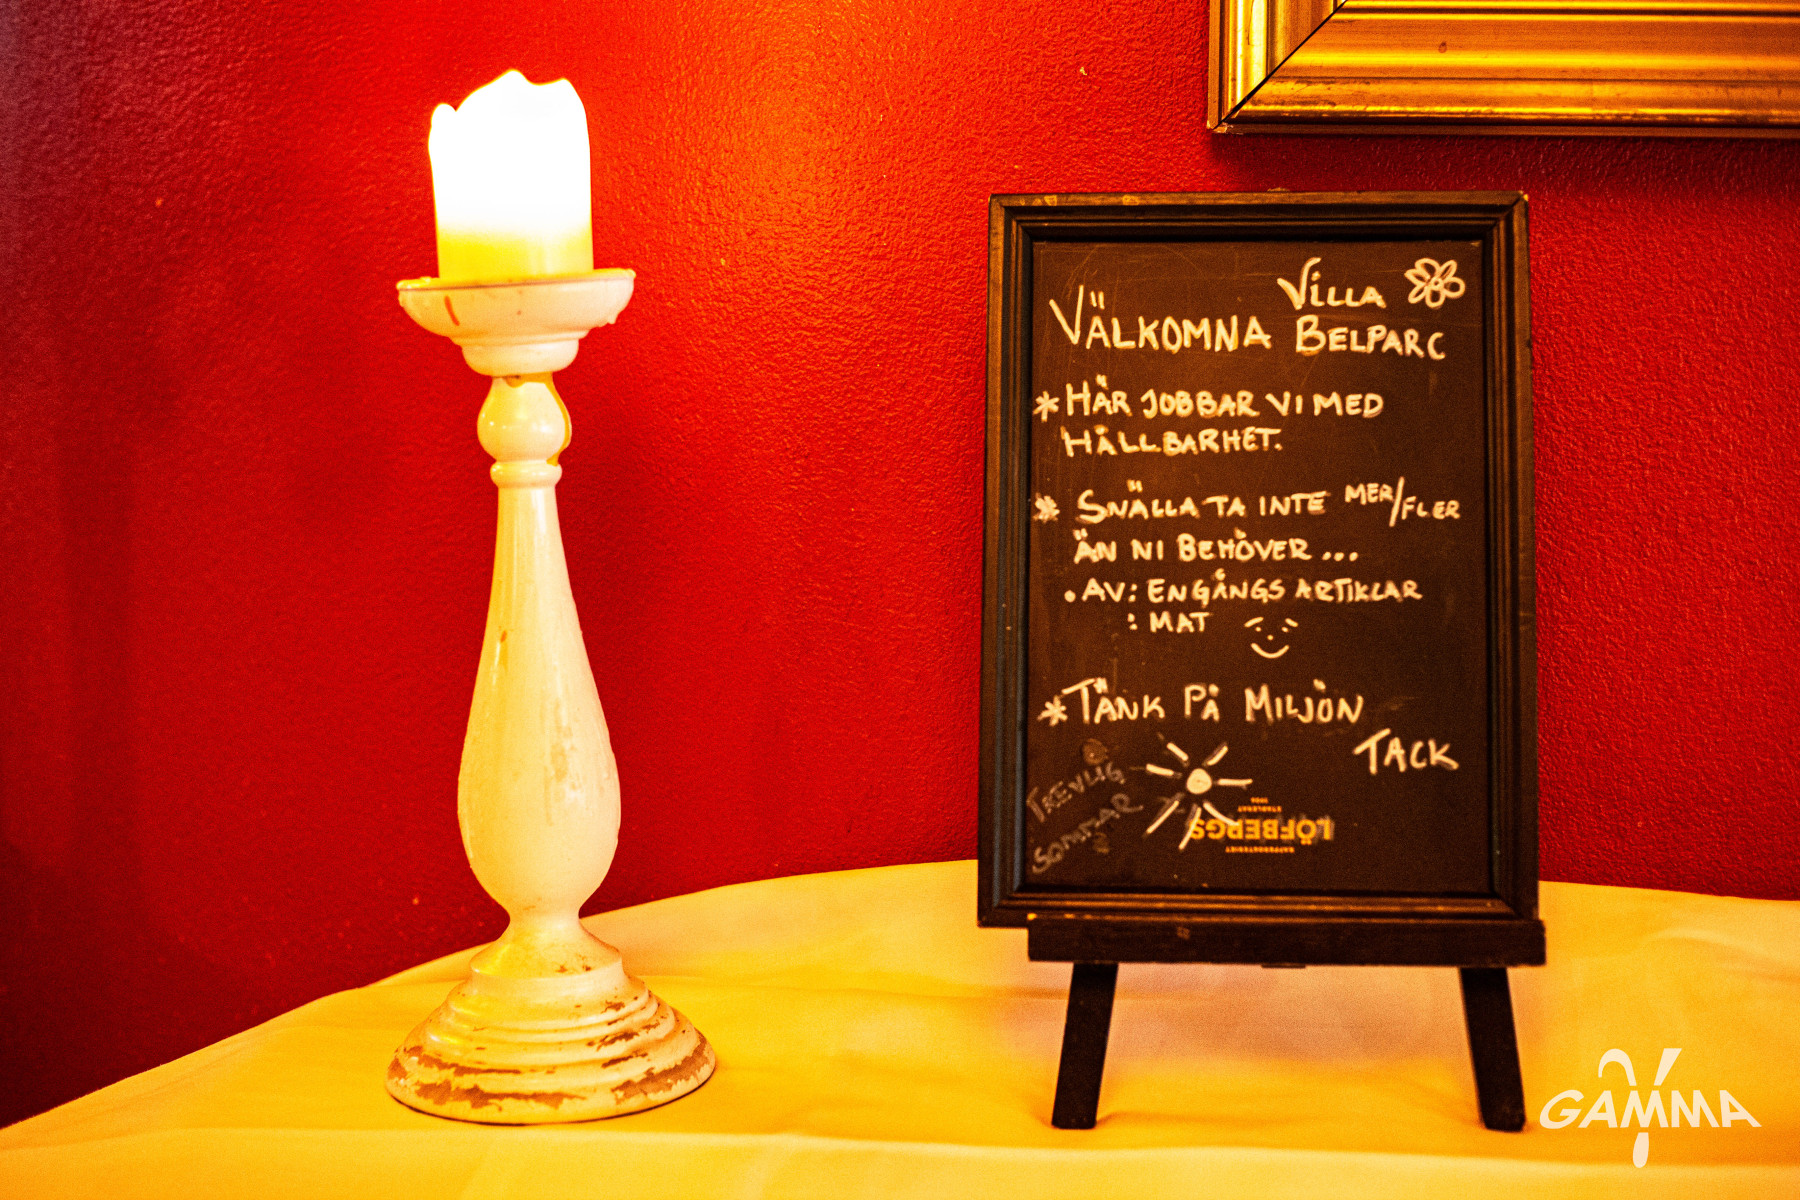 VÄLKOMNA VILLA BELPARC
* HÄR JOBBAR VI MED
HÅLLBARHET.
* SNÄLLA TA INTE MER/FLER
ÄN NI BEHÖVER...
. AV: ENGÅNGS ARTIKLAR
: MAT
* TÄNK PÅ MILJÖN
TACK
TREVLIG
SOMMAR
LÖFBERGS
GAMMA